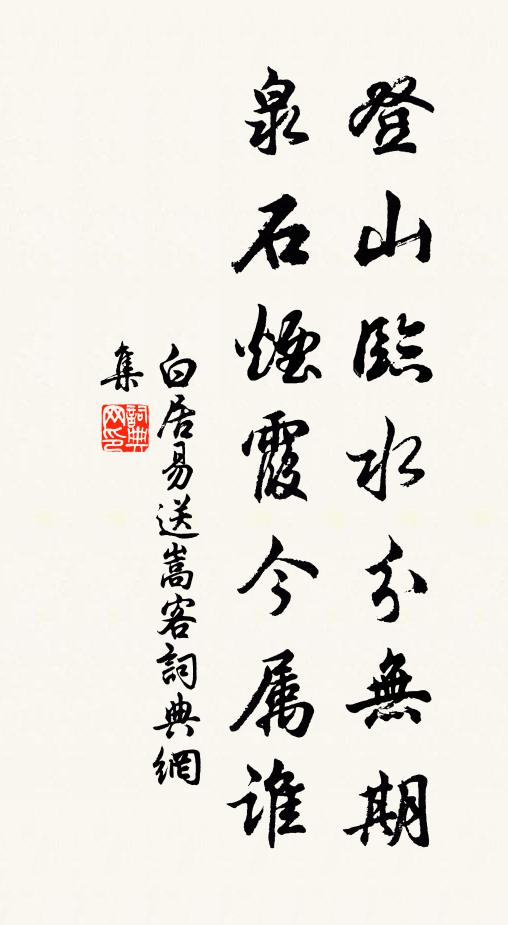 登山臨水分無期
泉石煙霞今属誰
白居易送嵩客詞典網
集
詞典网印